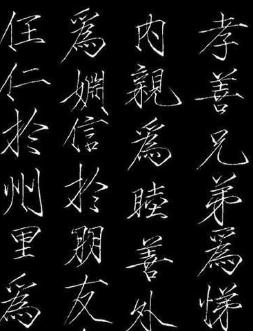 孝善兄弟爲悌
内親爲睦善外
爲婣信於朋友
任仁於州里爲